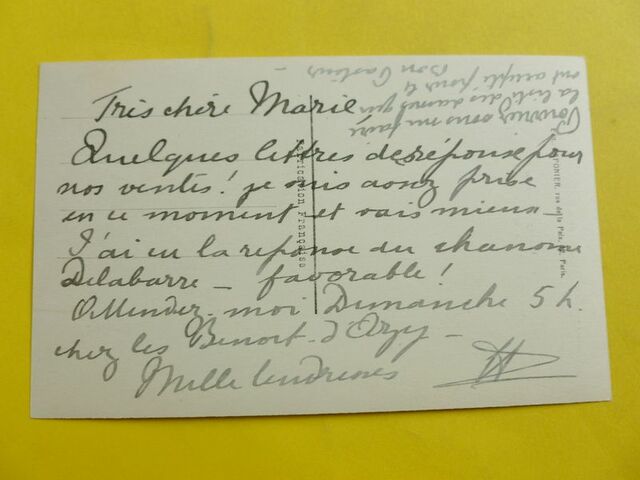 Très chère Marie
Quelques lettres de réponse pour
nos ventes! je suis assez prise
en ce moment et vais mieux –
J'ai eu la réponse du chanoine
Delabarre – favorable!
Attendez-moi Dimanche 5 h.
chez les Benoist-d'Azy –
Mille tendresses
Pourriez vous me faire
la liste des dames qui
ont accepté pour le
Bon Pasteur –
Fabrication Française
PONIER, rue de la Paix, Paris.